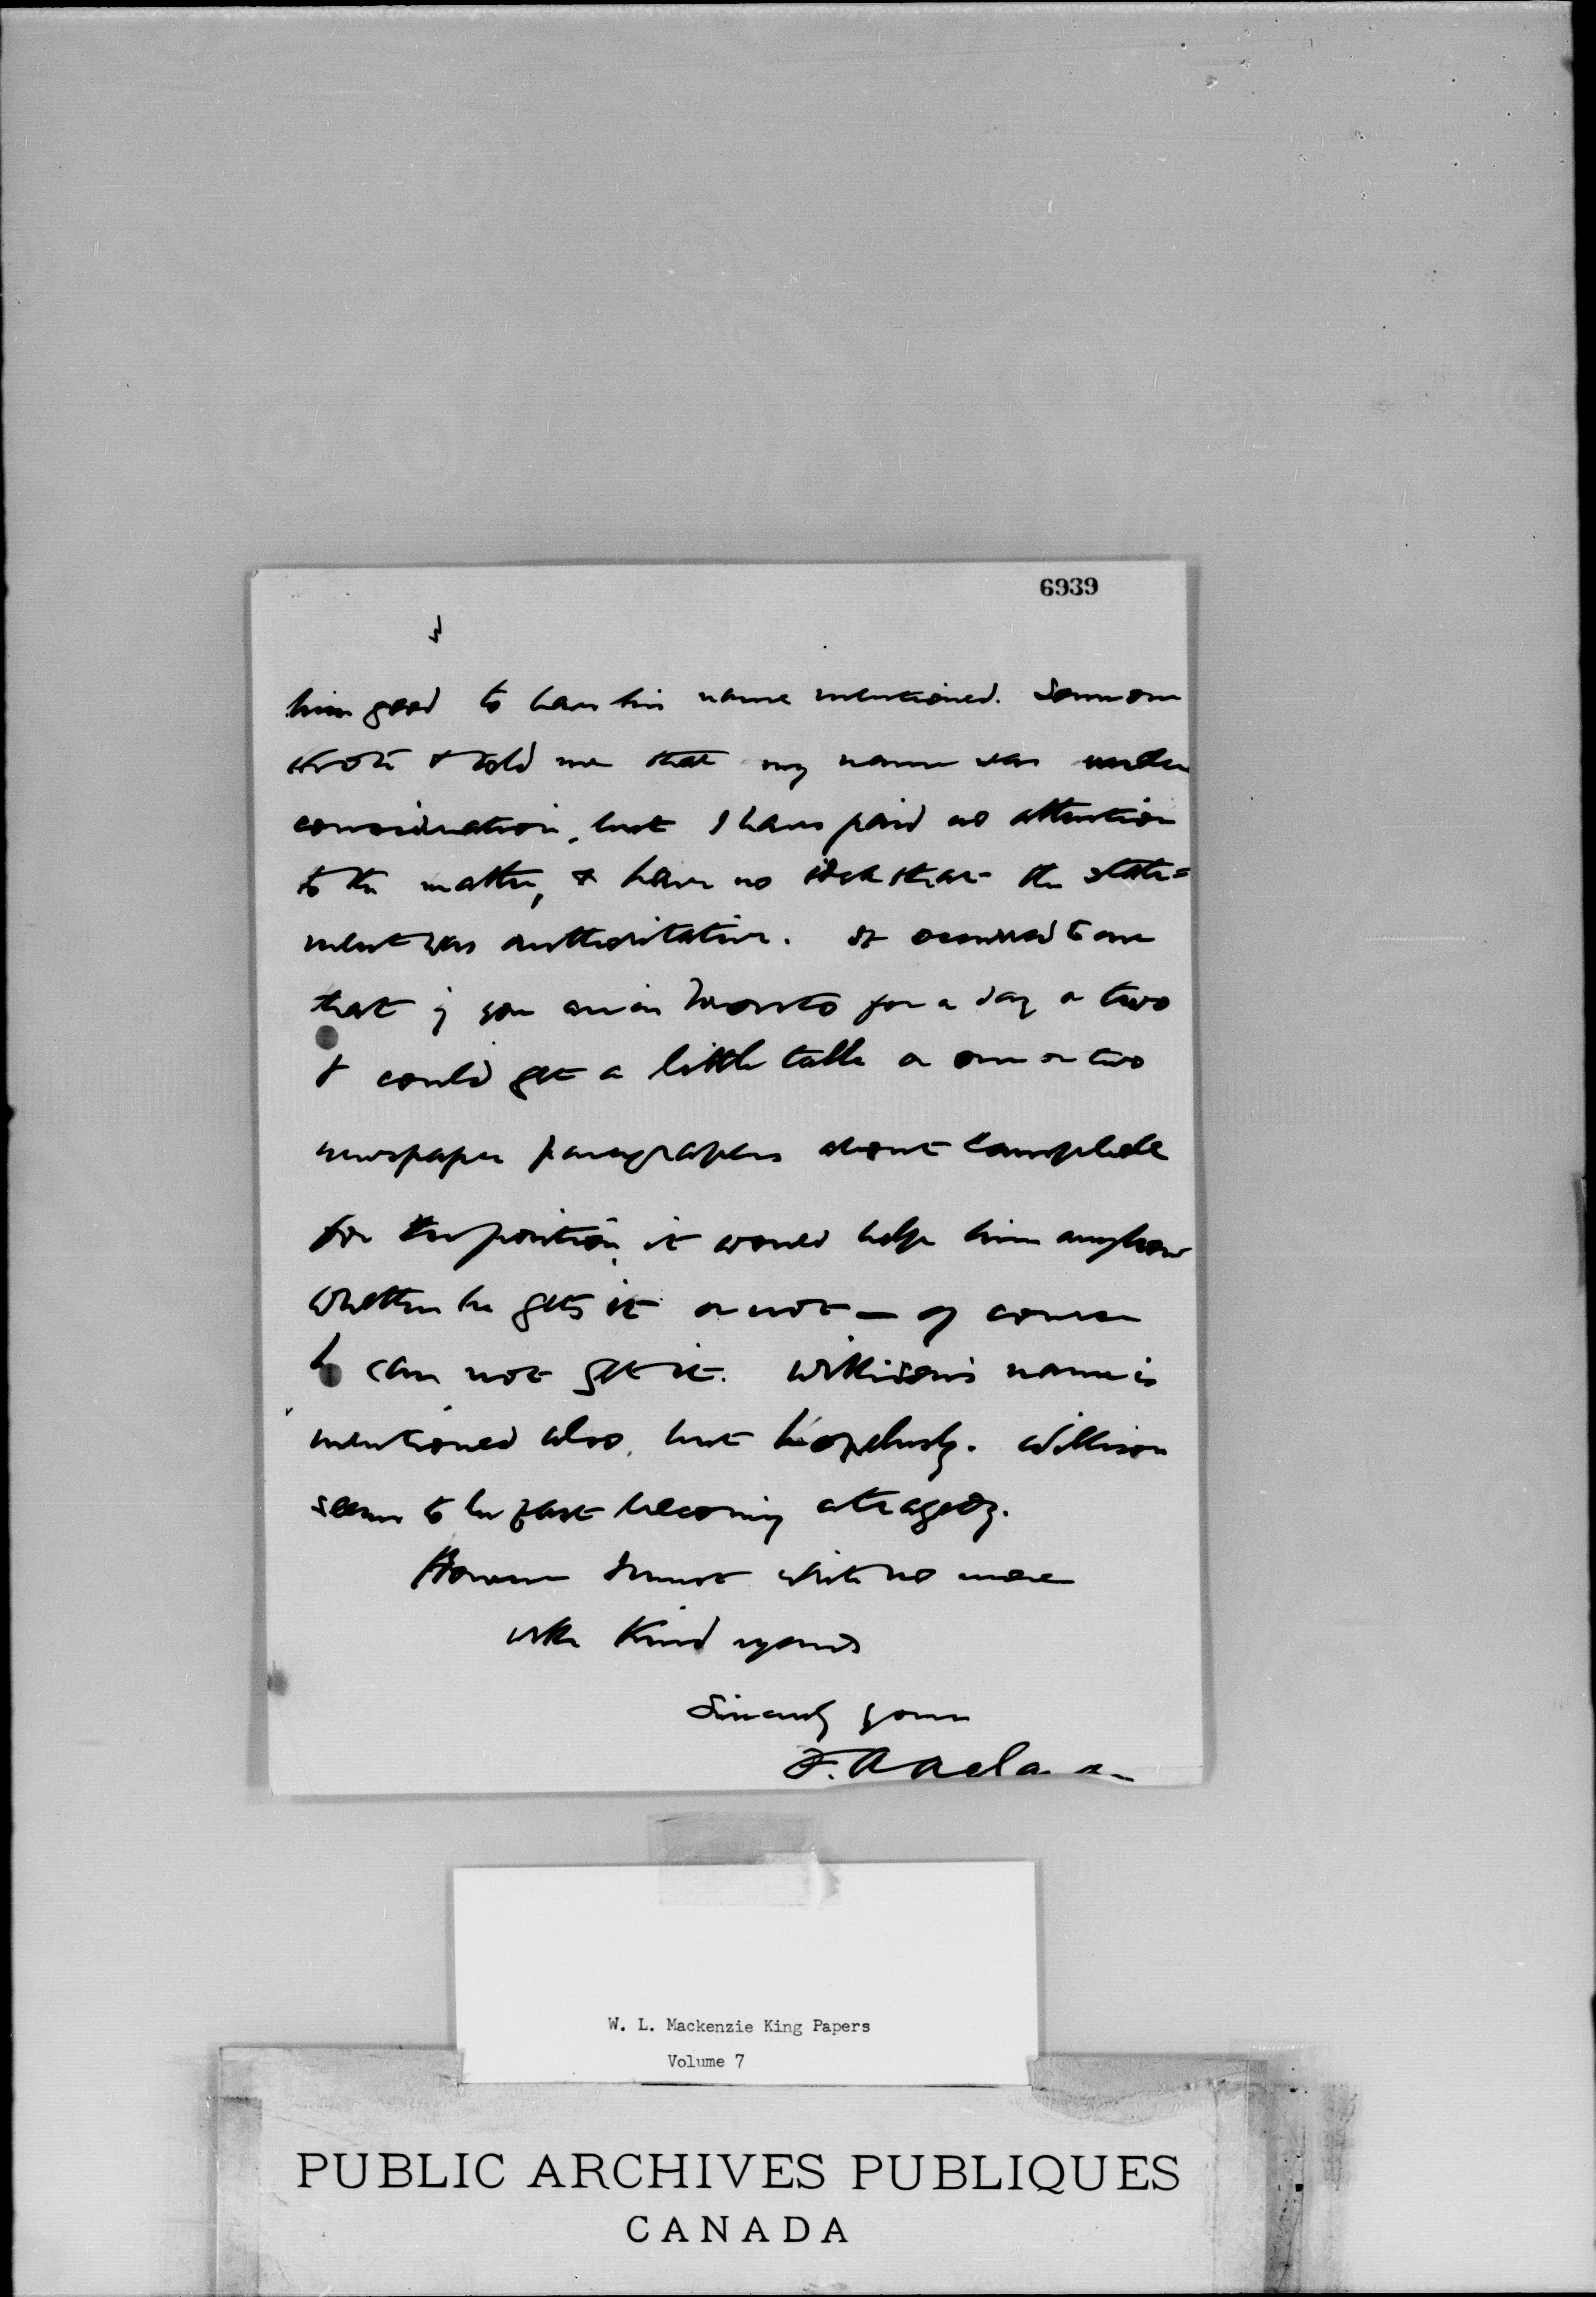 6939
him good to have his name mentioned. Someone
wrote & told me that my name was under
consideration, but I have paid no attention
to the matter, & have no idea that the state=
ment was authoritative. It occurred to me
that if you are in Toronto for a day or two
& could get a little talk or one or two
newspaper paragraphs about Campbell
for the position, it would help him anyhow
whether he gets it or not — of course
he can not get it. Willison's name is
mentioned also, but hopelessly. Willison
seems to be fast becoming a tragedy.
However I must write no more
with kind regards
Sincerely yours
W. L. Mackenzie King Papers
Volume 7
PUBLIC ARCHIVES PUBLIQUES
CANADA